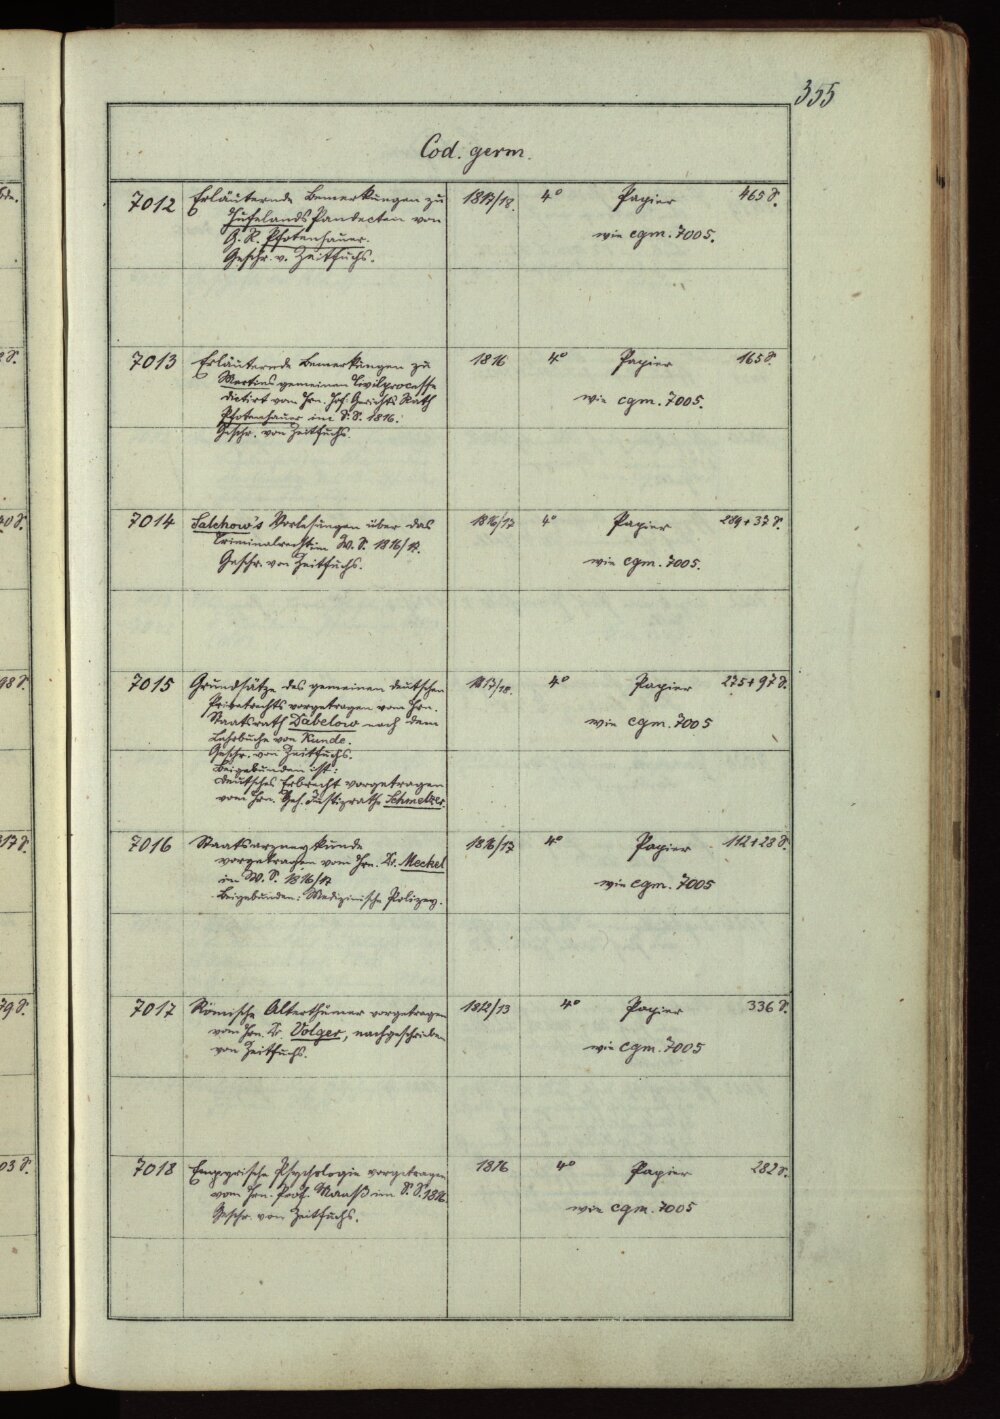 355
Cod. germ.
7012 Erläuternde Bemerkungen zu 1817/18. 4° Papier 465 S.
Hufelands Pandecten von wie cgm. 7005.
G. R. Pfotenhauer.
Geschr. v. Zeitfuchs.
7013 Erläuternde Bemerkungen zu 1816 4° Papier 165 S.
Martins gemeinen Civilprocesse wie cgm. 7005.
dictirt vom Hrn. Hof. Gerichts Rath
Pfotenhauer im S. S. 1816.
Geschr. von Zeitfuchs.
7014 Salchow's Vorlesungen über das 1816/17 4° Papier 289+37 S.
Criminalrecht im W. S. 1816/17. wie cgm. 7005.
Geschr. von Zeitfuchs.
7015 Grundsätze des gemeinen deutschen 1817/18. 4° Papier 275+97 S.
Privatrechts vorgetragen vom Hrn. wie cgm. 7005
Staatsrath Dabelow nach dem
Lehrbuche von Runde.
Geschr. von Zeitfuchs.
Beigebunden ist:
Deutsches Erbrecht vorgetragen
vom Hrn. Geh. Justizrathe Schmelzer.
7016 Staatsarzneykunde 1816/17 4° Papier 112+28 S.
vorgetragen vom Hrn. Dr. Meckel wie cgm. 7005
im W. S. 1816/17
Beigebunden: Medizinische Polizey.
7017 Römische Alterthümer vorgetragen 1812/13 4° Papier 336 S.
vom Hrn. Dr. Volger, nachgeschrieben wie cgm. 7005
von Zeitfuchs.
7018 Empyrische Psychologie vorgetragen 1816 4° Papier 282 S.
vom Hrn. Prof. Maaß im S. S. 1816 wie cgm. 7005
Geschr. von Zeitfuchs.